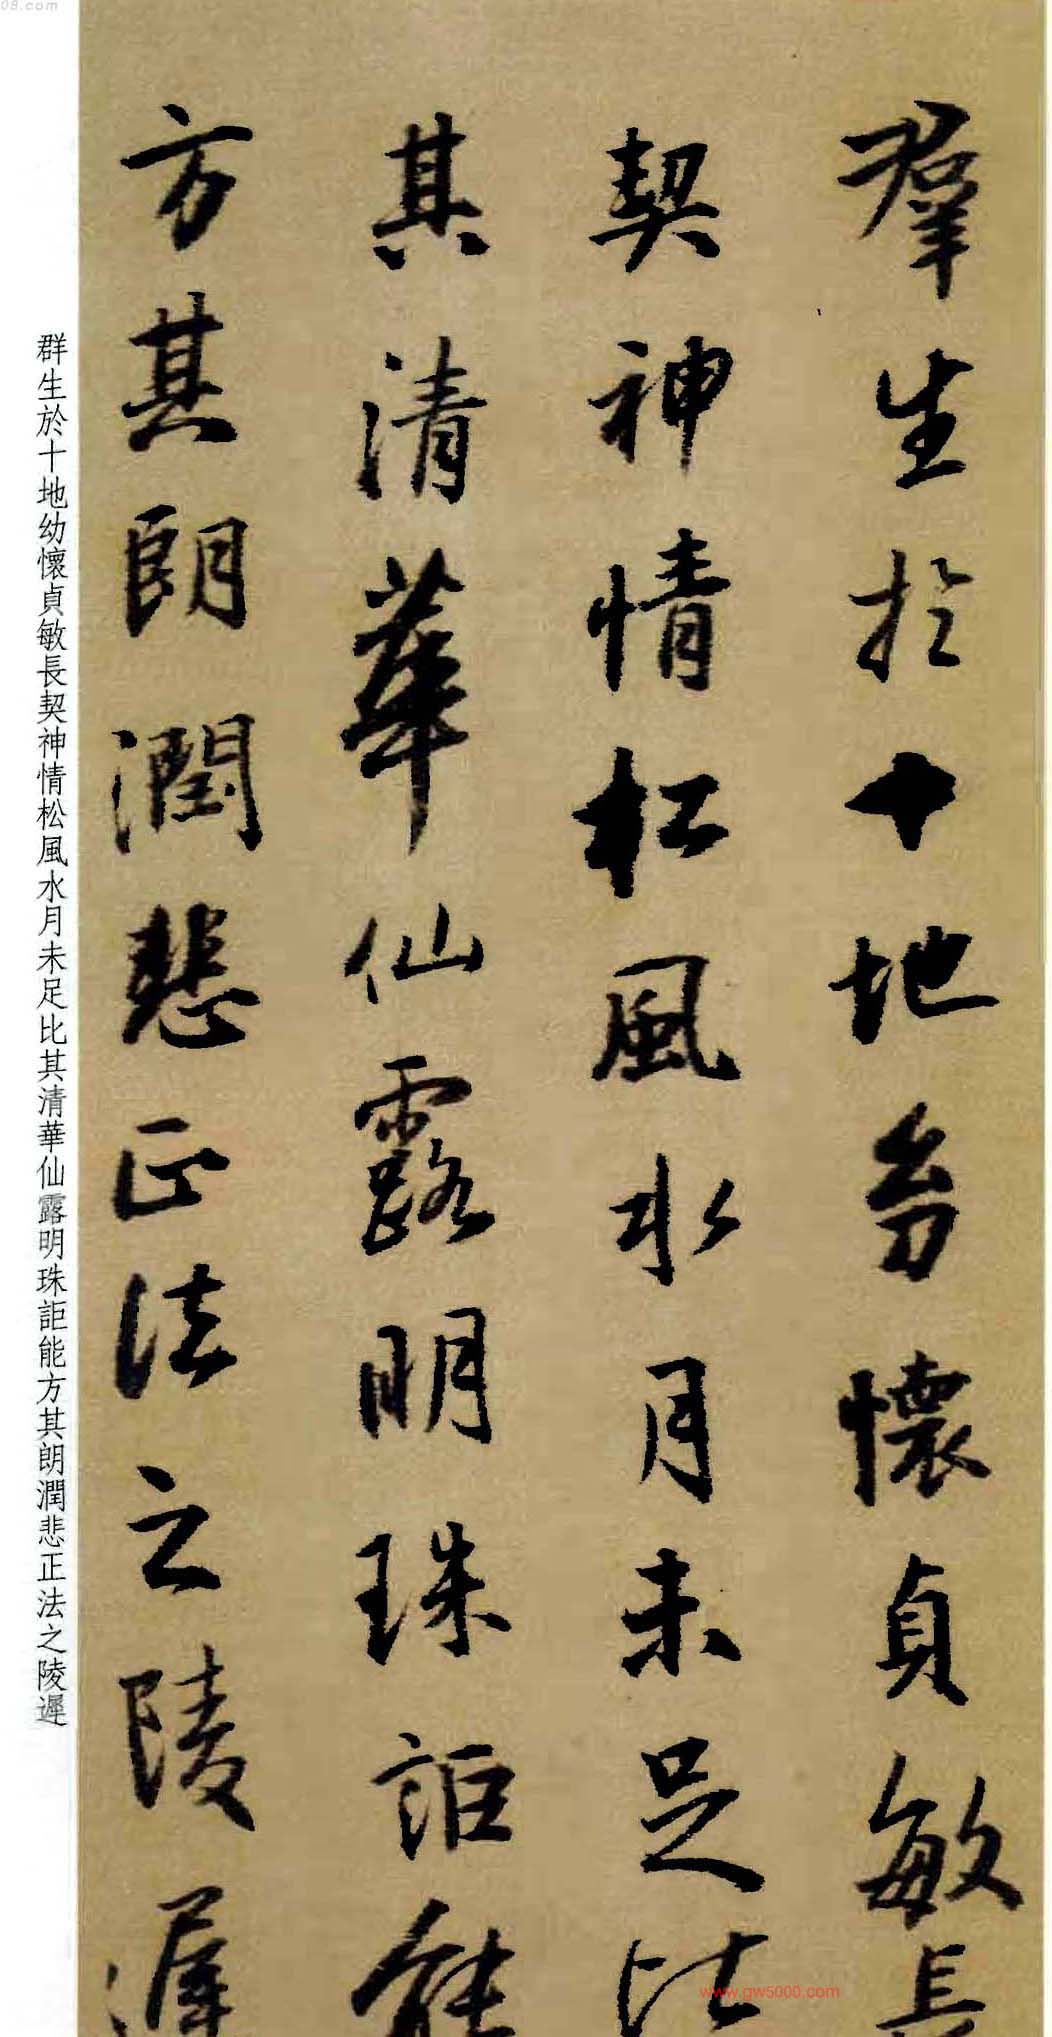 群生於十地幼懷貞敏長
契神情松風水月未足比
其清華仙露明珠詎能
方其朗潤悲正法之陵遲
群生於十地幼懷貞敏長契神情松風水月未足比其清華仙露明珠詎能方其朗潤悲正法之陵遲
08.com
www.gw5000.com